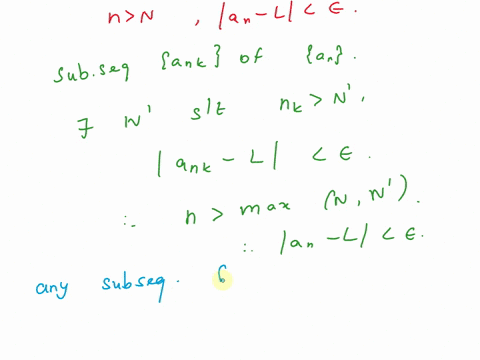 n>N , |an-L| < ϵ.
sub.seq {ank} of {an}.
∃ N' s/t nk > N',
|ank - L| < ϵ.
∴ n > max (N, N').
∴ |an - L| < ϵ.
any subseq.